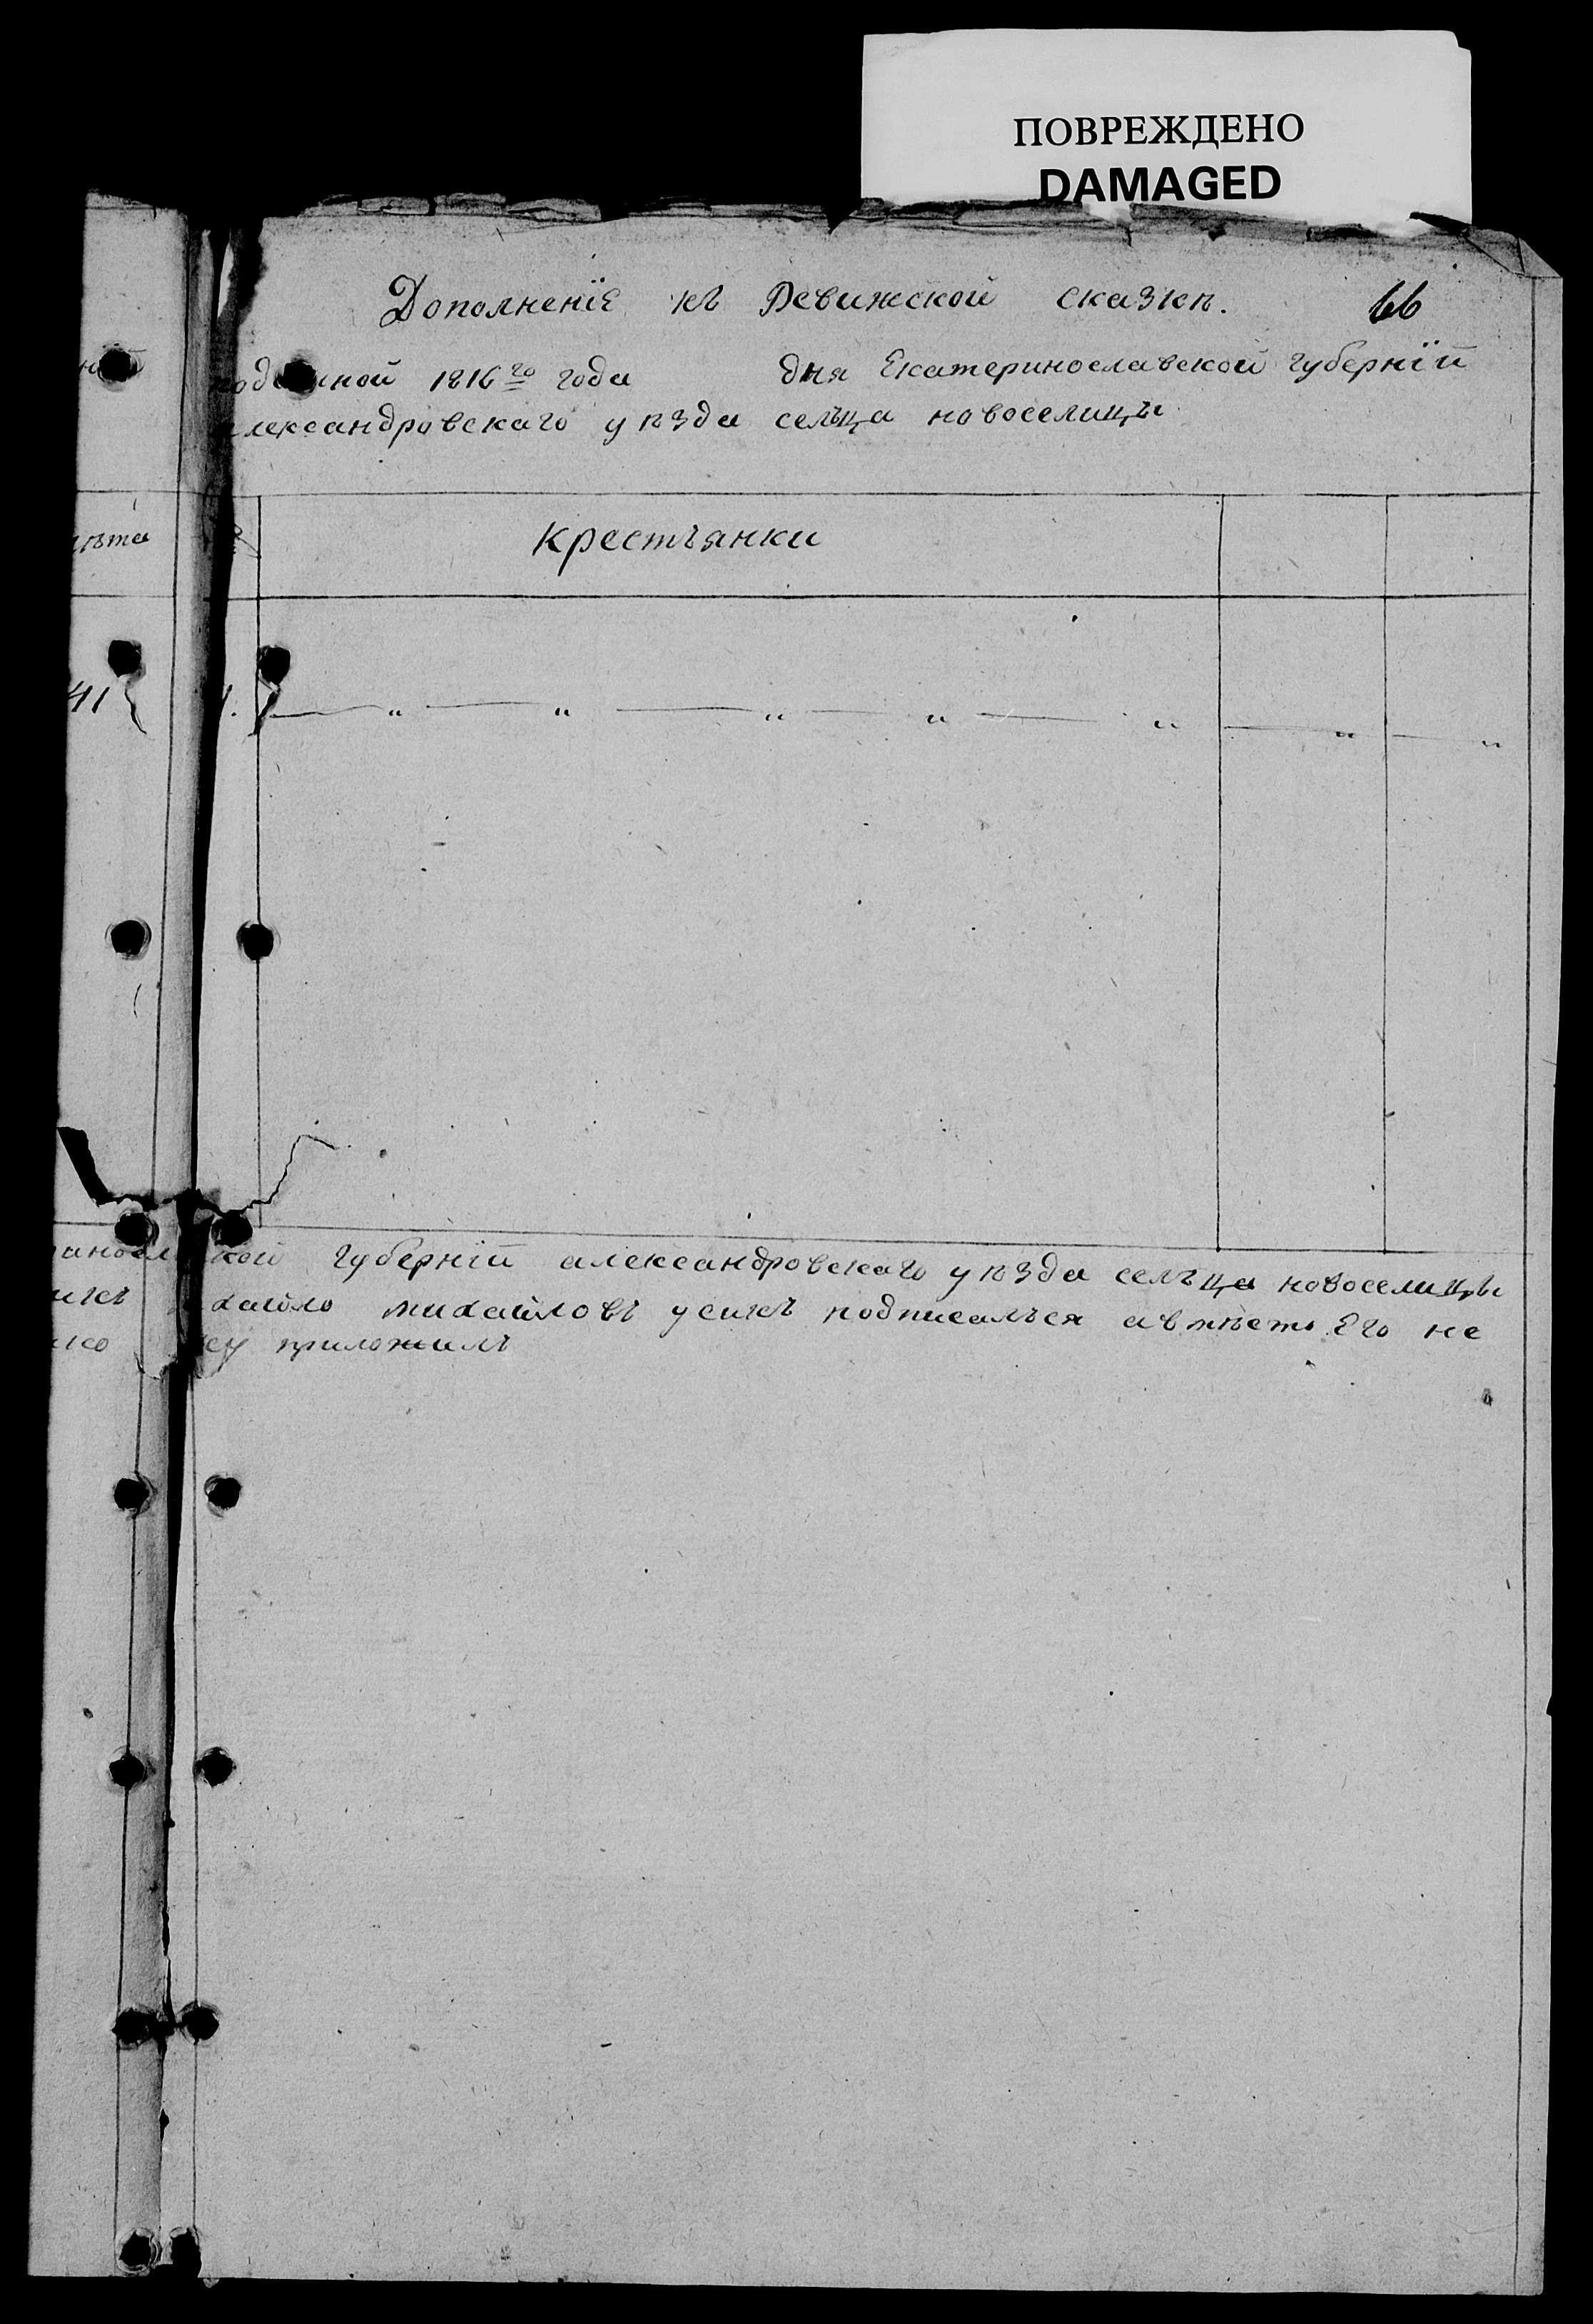 ПОВРЕЖДЕНО
DAMAGED
Дополненіе къ Ревижской сказкѣ. 66
1816го года дня Екатеринославской губерніи
лександровскаго уѣзда сельца новоселицы
лѣта крестьянки
41 1.
кой губерніи александровскаго уѣзда сельца новоселицы
хайло михайловъ усикъ подписалься авмѣсто Его не
приложилъ